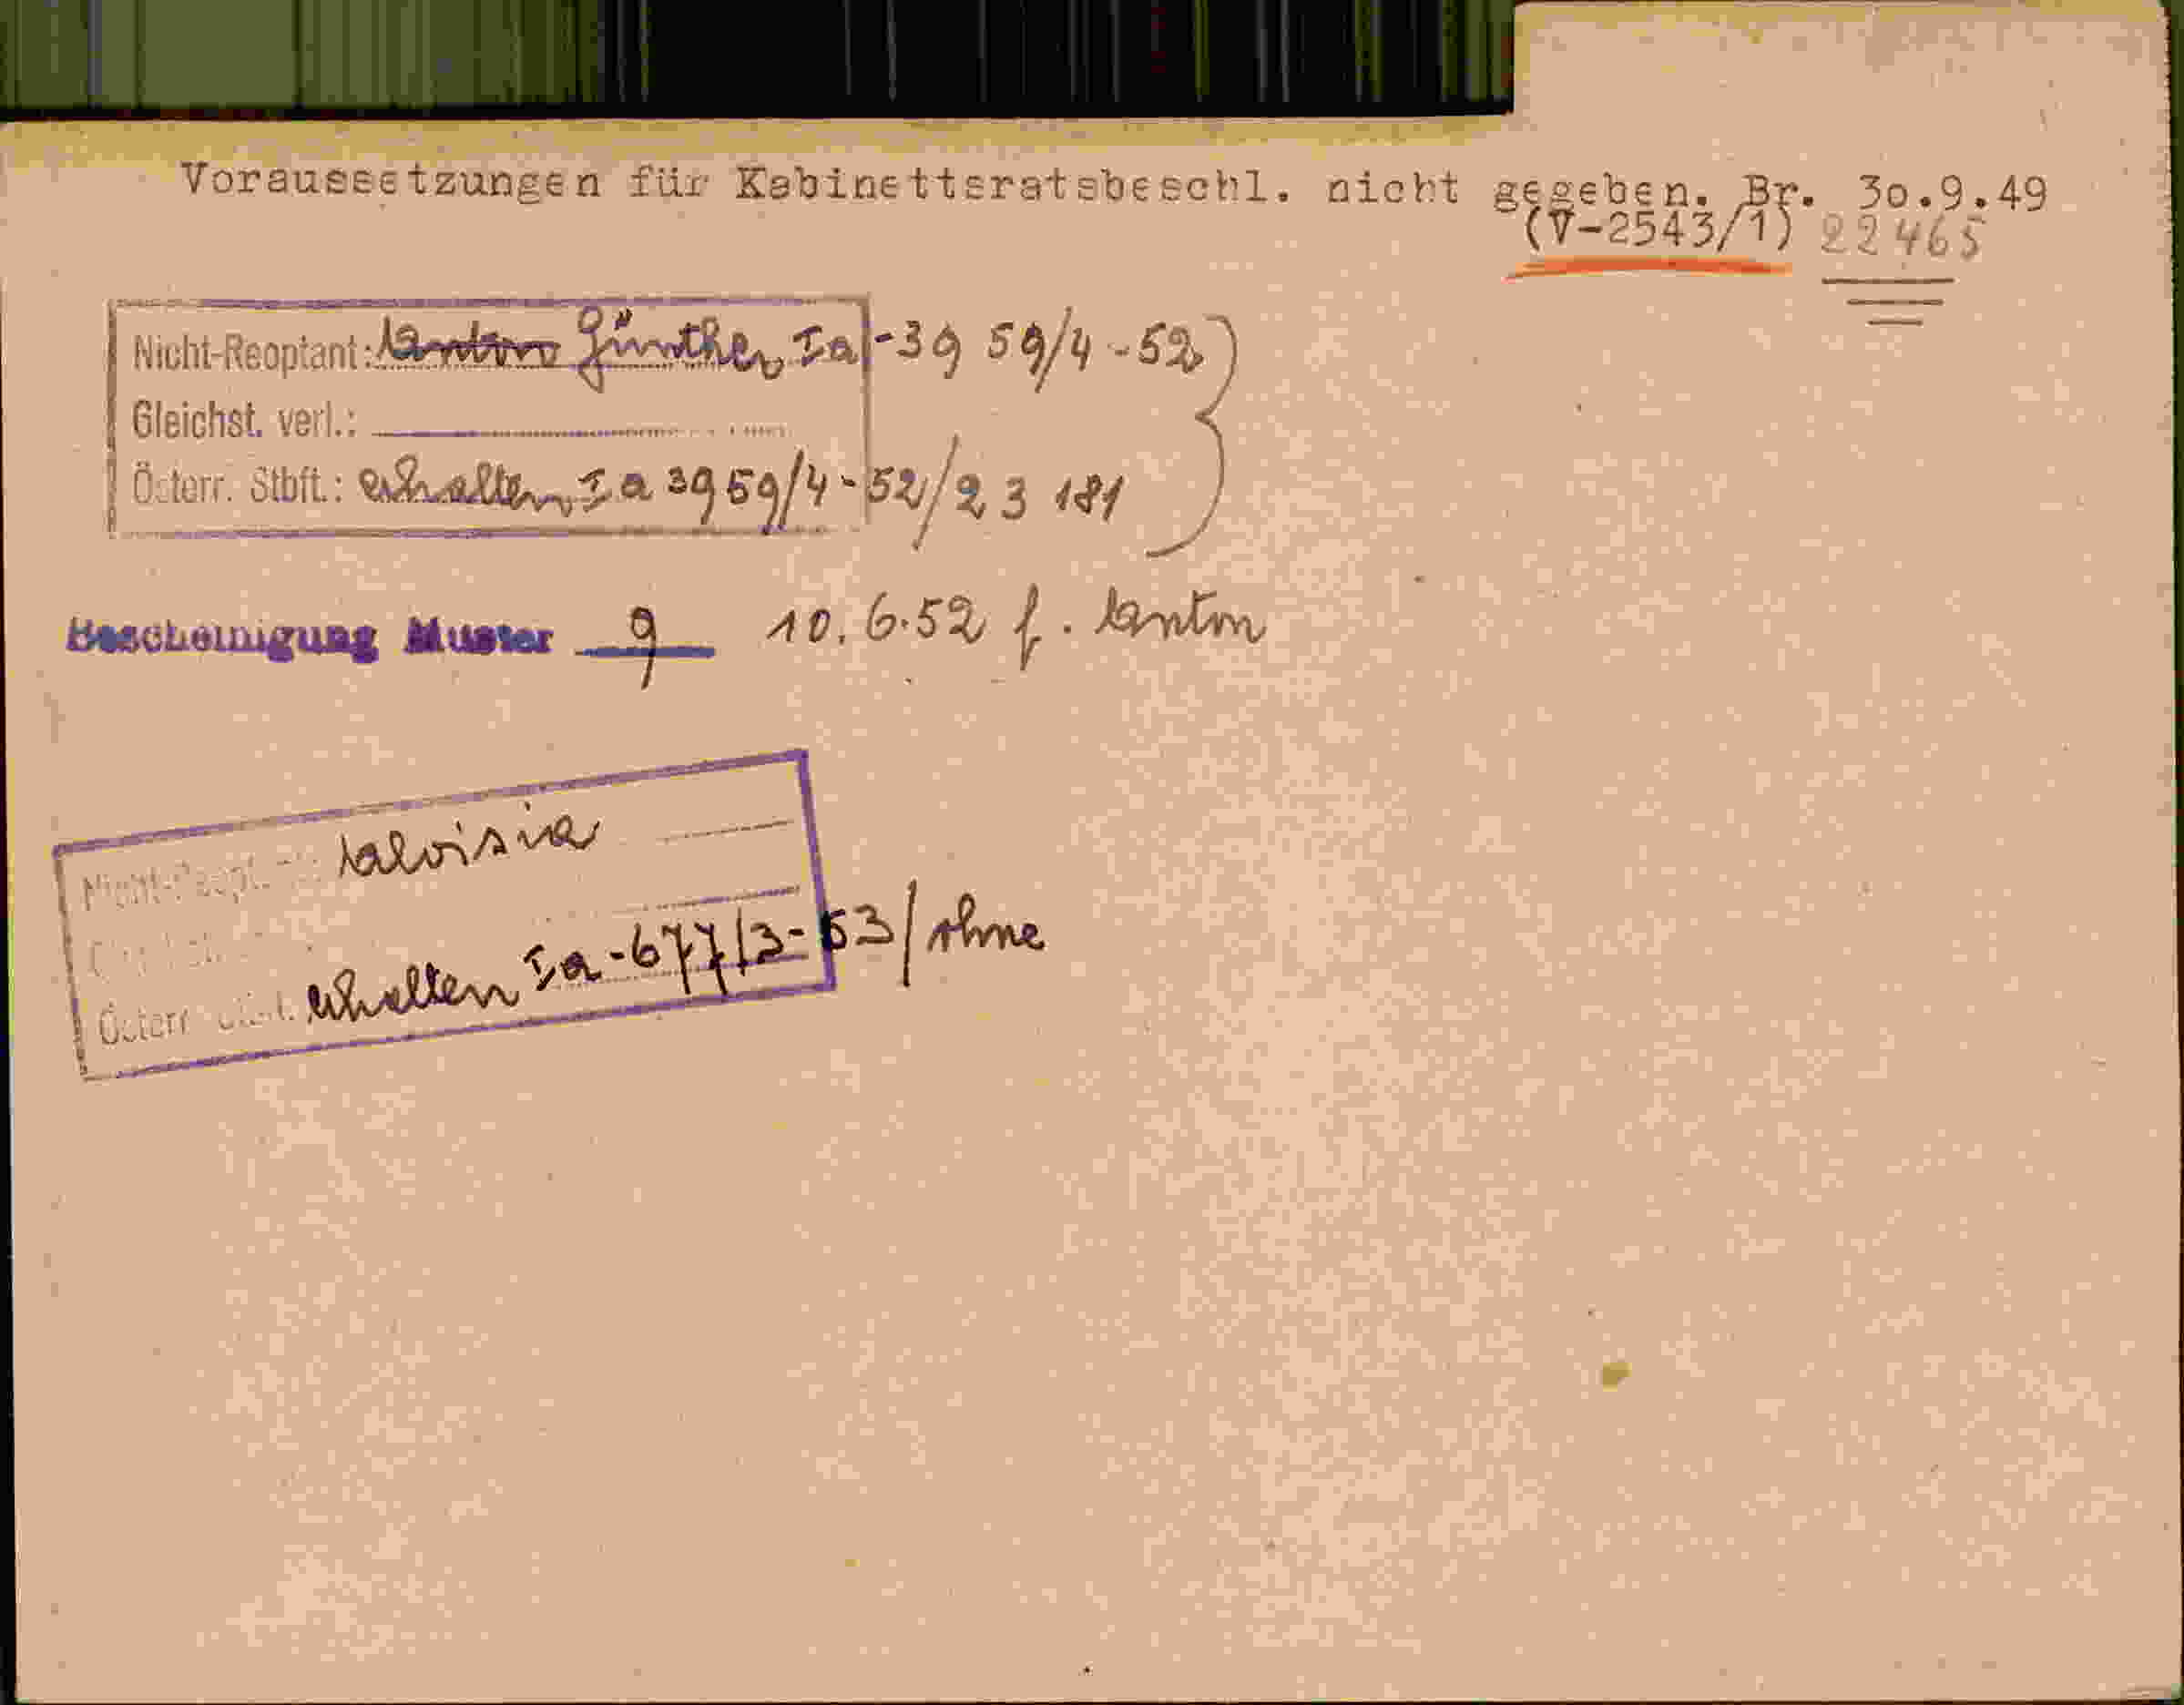 Voraussetzungen für Kabinettsratsbeschl. nicht gegeben. Br. 30.9.49
(V-2543/1) 22465
Nicht-Reoptant: Anton Günther Ia-3959/4-52
Gleichst. verl.:
Österr. Stbft.: erhalten Ia 3959/4-52/23 181
Bescheinigung Muster 9 10.6.52 f. Anton
Nicht-Reopt. Aloisia
Österr. erhalten Ia-677/3-53/ohne